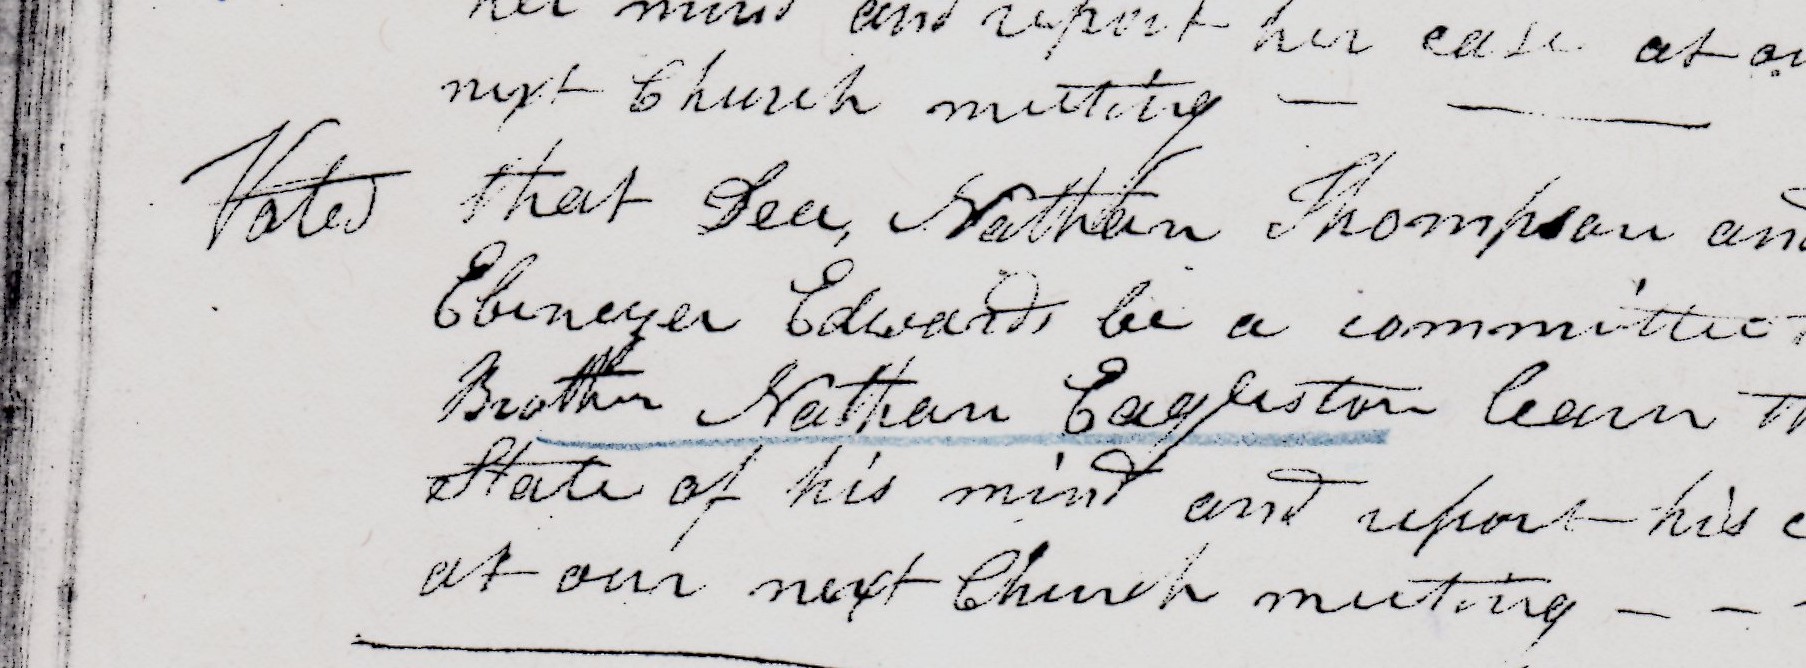 her mind and report her case at
next Church meeting — —
Voted that Dea, Nathan Thompson and
Ebenezer Edwards be a committee
Brother Nathan Eagleston learn
State of his mind and report his
at our next Church meeting - - -